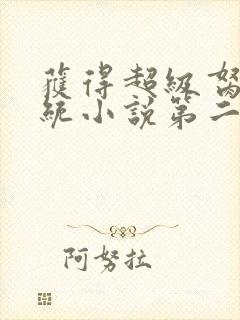 獲得超級
統小說第二
阿努拉